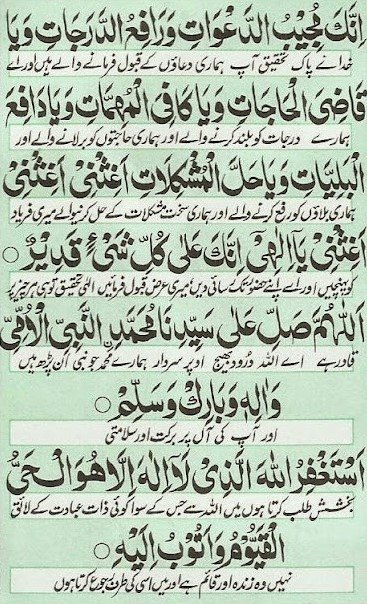 اِنَّكَ مُجِيْبُ الدَّعْوَاتِ وَرَافِعُ الدَّرَجَاتِ وَيَا
خدائے پاک تحقیق آپ ہماری دعاؤں کے قبول فرمانے والے ہیں اور اے
قَاضِىَ الْحَاجَاتِ وَيَا كَافِىَ الْمُهِمَّاتِ وَيَا دَافِعَ
ہمارے درجات کو بلند کرنے والے اور ہماری حاجتوں کو بر لانے والے اور
الْبَلِيَّاتِ وَيَا حَلَّ الْمُشْكِلَاتِ اَغِثْنِىْ اَغِثْنِىْ
ہماری بلاؤں کو رفع کرنے والے اور ہماری سخت مشکلات کے حل کرنیوالے میری فریاد
اَغِثْنِىْ يَآ اِلٰهِىْ اِنَّكَ عَلٰى كُلِّ شَىْءٍ قَدِيْرٌ ○
کو پہنچیں اور اے اپنے حضور تک رسائی دیں میری عرض قبول فرمائیں الٰہی تحقیق تو ہی ہر چیز پر
اَللّٰهُمَّ صَلِّ عَلٰى سَيِّدِنَا مُحَمَّدِ النَّبِىِّ الْاُمِّىِّ
قادر ہے اے اللہ درود بھیج اوپر سردار ہمارے محمد جو نبی اَن پڑھ ہیں
وَاٰلِهٖ وَبَارِكْ وَسَلِّمْ ○
اور آپ کی آل پر برکت اور سلامتی
اَسْتَغْفِرُ اللّٰهَ الَّذِىْ لَآ اِلٰهَ اِلَّا هُوَ الْحَىُّ
بخشش طلب کرتا ہوں میں اللہ سے جس کے سوا کوئی ذات عبادت کے لائق
الْقَيُّوْمُ وَاَتُوْبُ اِلَيْهِ ○
نہیں وہ زندہ اور قائم ہے اور میں اسی کی طرف رجوع کرتا ہوں